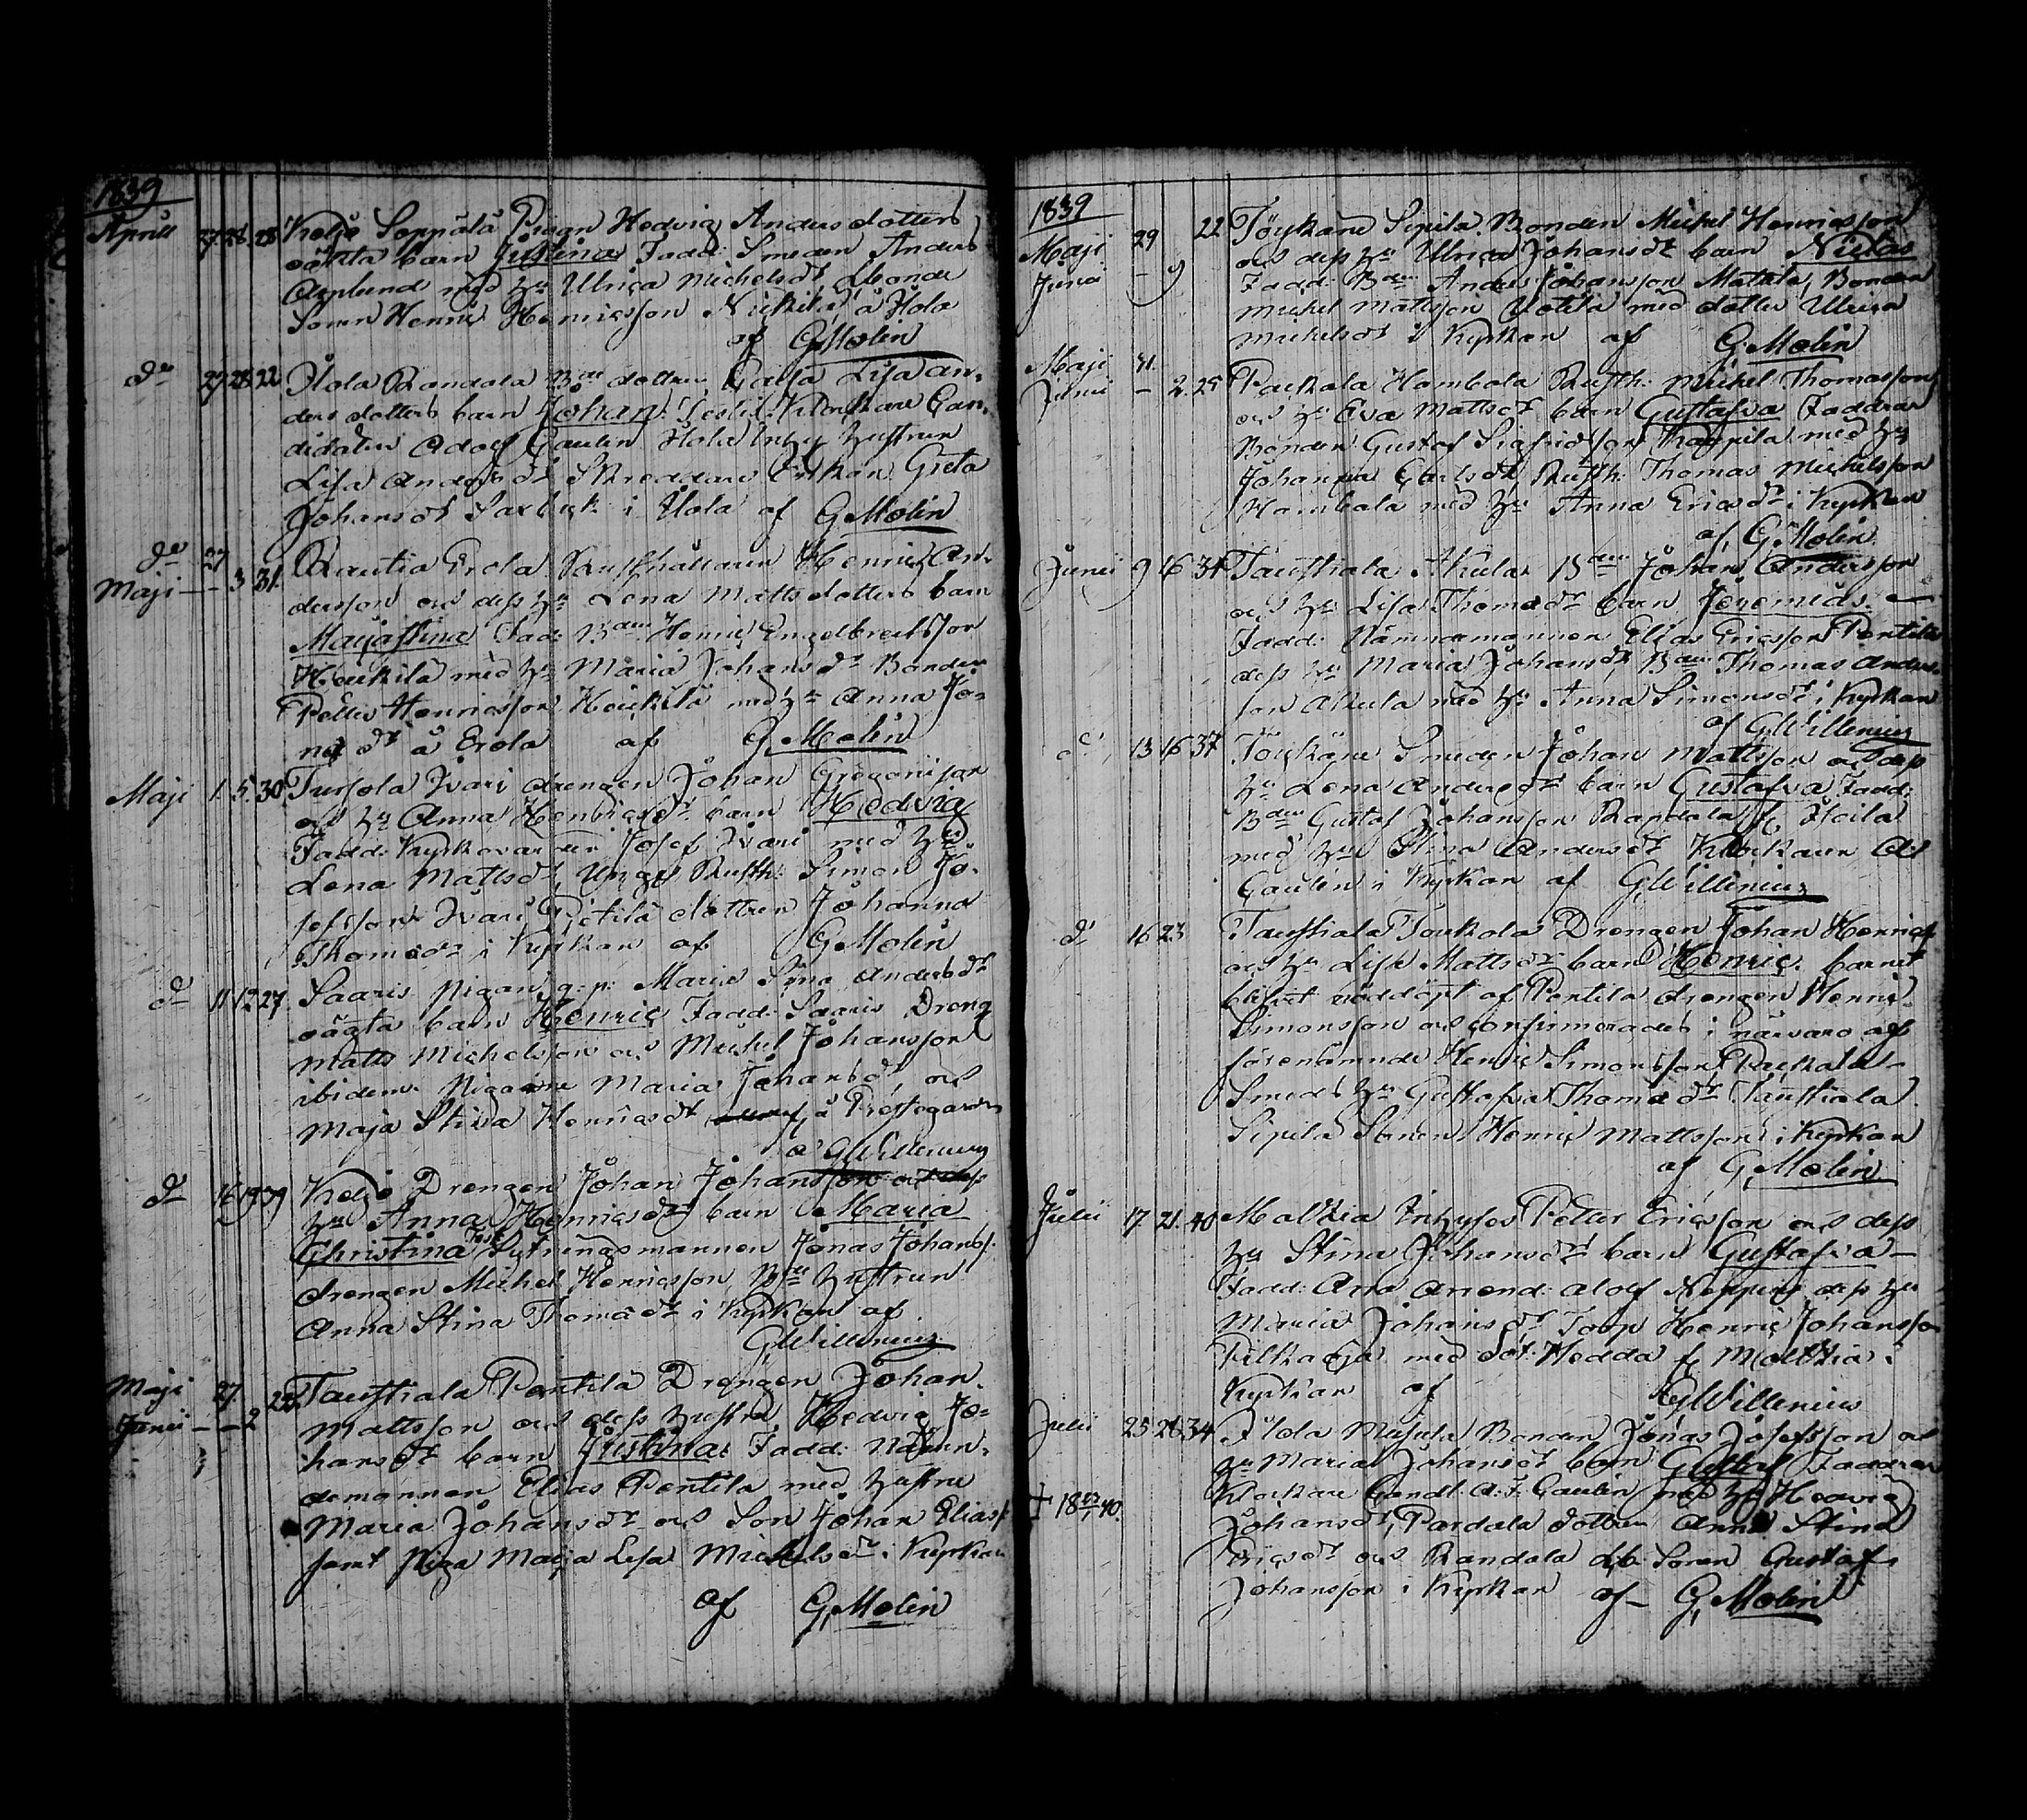 1839
Aprill 27. 28. 28 Keljo Seppälä Pigan Hedvig Anders dotters
oäkta barn Justina Fadd: Smeden Anders
Asplund med hu Ulrica Michelsdr, Bonde
Sonen Henric Henricsson Nickila å Hola
af G. Molin
do 27 28. 22 Hola Randala Bde dottren Caisa Lisa An-
ders dotters barn Johan. Klockare Can-
didaten Adolf Gaulin Hola Inhy hustrun
Lisa Andersdr Skreddare Enkan Greta
Johansdr i Hola af G Molin
do 27
Maji — - 3 31. Rautia Erola Rusthållaren Henric An-
dersson och dess hu Lena Mattsdotters barn
Majastina Fad: Bden Henric Engelbrechtsson
Heickilä med hu Maria Johansdr Bonden
Petter Henricsson Heickilä med hu Anna Jo-
nædr å Erola af G Molin
Maji 1. 5. 30 Tursola Ivari drengen Johan Gregorisson
och hu Anna Henricsdr barn Hedvig
Fadd: Kyrkovärden Josef Ivari med hu
Lena Mattsdr, Unge Rusth: Simon Jo-
sefsson Ivari dottren Johanna
Thomædr i Kyrkan af G Molin
do 11 12 27. Saaris Pigan g. p. Maria Stina Andersdr
oägta barn Henric Fadd: Saaris Dreng
Matts Michelsson och Michel Johansson
ibidem Pigorne Maria Johansdr och
Maja Stina Henricsdr å Prestegården
a G Willenius
do 16 19 39 Keljo Drengen Johan Johansson och dess
hu Anna Henricsdr barn Maria
Christina Fad: Sytningsmannen Jonas Johanss.
drengen Michel Henricsson Bde hustrun
Anna Stina Thomædr i Kyrkan af
G Willenius
Maji 27. 28. Taustiala Pentila Drengen Johan
Junii — - 2 Mattsson och dess hustru Hedvig Jo-
hansdr barn Justina Fadd: Nämn-
demannen Elias Pentila med hustru
Maria Johansdr och Son Johan Eliass:
samt Piga Maja Lisa Michelsdr i Kyrkan
af G. Molin
1839
Maji 29 22 Töykäne Sipila Bonden Michel Henricsson
Junii - 9 och dess hu Ulrica Johansdr barn Niclas
Fadd: Bden Anders Johansson Mattila, Bonden
Michel Mattsson Yotila med dotter Ulrica
Michelsdr i Kyrkan af G. Molin
Maji 31.
Junii — 2. 25 Packala Hambala Rusth: Michel Thomasson
och hu Eva Mattsdr barn Gustafva Faddrar
Bonden Gustaf Sigfridsson med hu
Johanna Carlsdr Rusth: Thomas Michelsson
Hambala med hu Anna Ericsdr i Kyrkan
af G. Molin
Junii 9 16 34 Taustiala Akulas Bden Johan Andersson
och hu Lisa Thomædr barn Jeremias —
Fadd: Nämndemannen Elias Ericsson Pentila
dess hu Maria Johansdr, Bden Thomas Anders-
son Akula med hu Anna Simonsdr i Kyrkan
af G Willenius
do 13 16 37 Töykäne Smeden Johan Mattsson och dess
hu Lena Andersdr barn Gustafva Fadd:
Bden Gustaf Johansson Randala fr Hoila
med hu Stina Andersdr Klockaren Ad
Gaulin i Kyrkan af G Willenius
do 16 23 Taustiala Toukola Drengen Johan Henricss
och hu Lisa Mattsdr barn Henric. barnet
blifvit nöddöpt af Pentila drengen Henric
Simonsson och confirmerades i närvaro af
förenämnde Henric Simonsson, Packala
Smeds hu Gustafva Thomædr Taustiala
Sipila Sonen Henric Mattsson i Kyrkan
af G. Molin
Julii 17 21. 40 Maltzia Inhyses Petter Ericsson och dess
hu Stina Johansdr barn Gustafva —
Fadd: Arrend: Adolf dess hu
Maria Johansdr Torp Henric Johansson
med dot: Hedda fr Maltzia i
Kyrkan af G Willenius
Julii 25 28 34 Hola Bonden Jonas Josefsson och
hu Maria Johansdr barn Gustaf Faddrar
Klockare Candt. A. F. Gaulin med hu Hedvig
‡ 18 40. Johansdr, Pardala dottren Anna Stina
Ericsdr och Randala Sonen Gustaf
Johansson i Kyrkan af — G. Molin